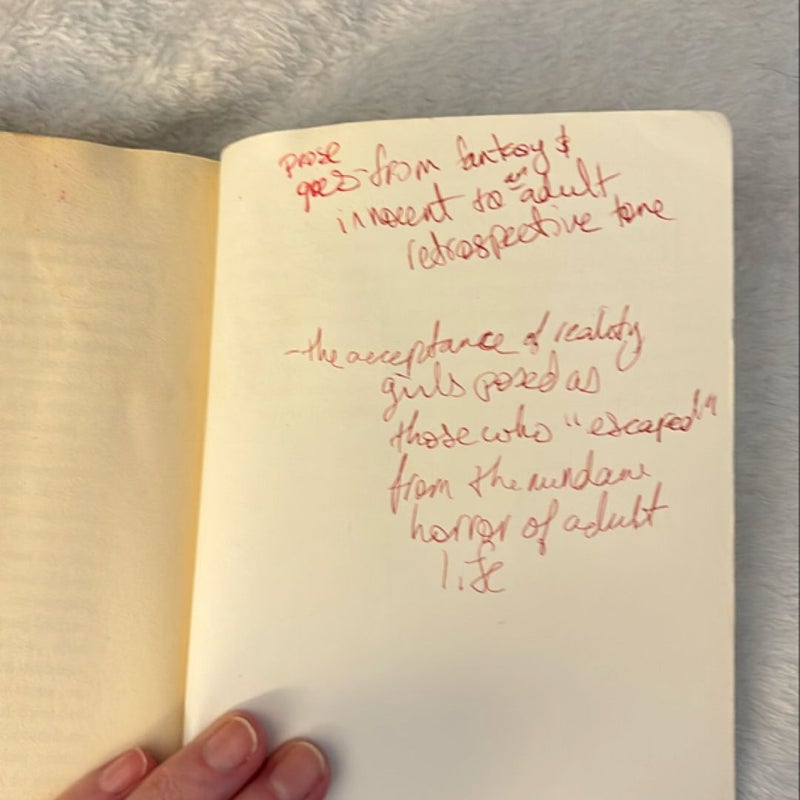 prose
goes from fantasy &
innocent to an adult
retrospective tone
-the acceptance of reality
girls posed as
those who "escaped"
from the mundane
horror of adult
life